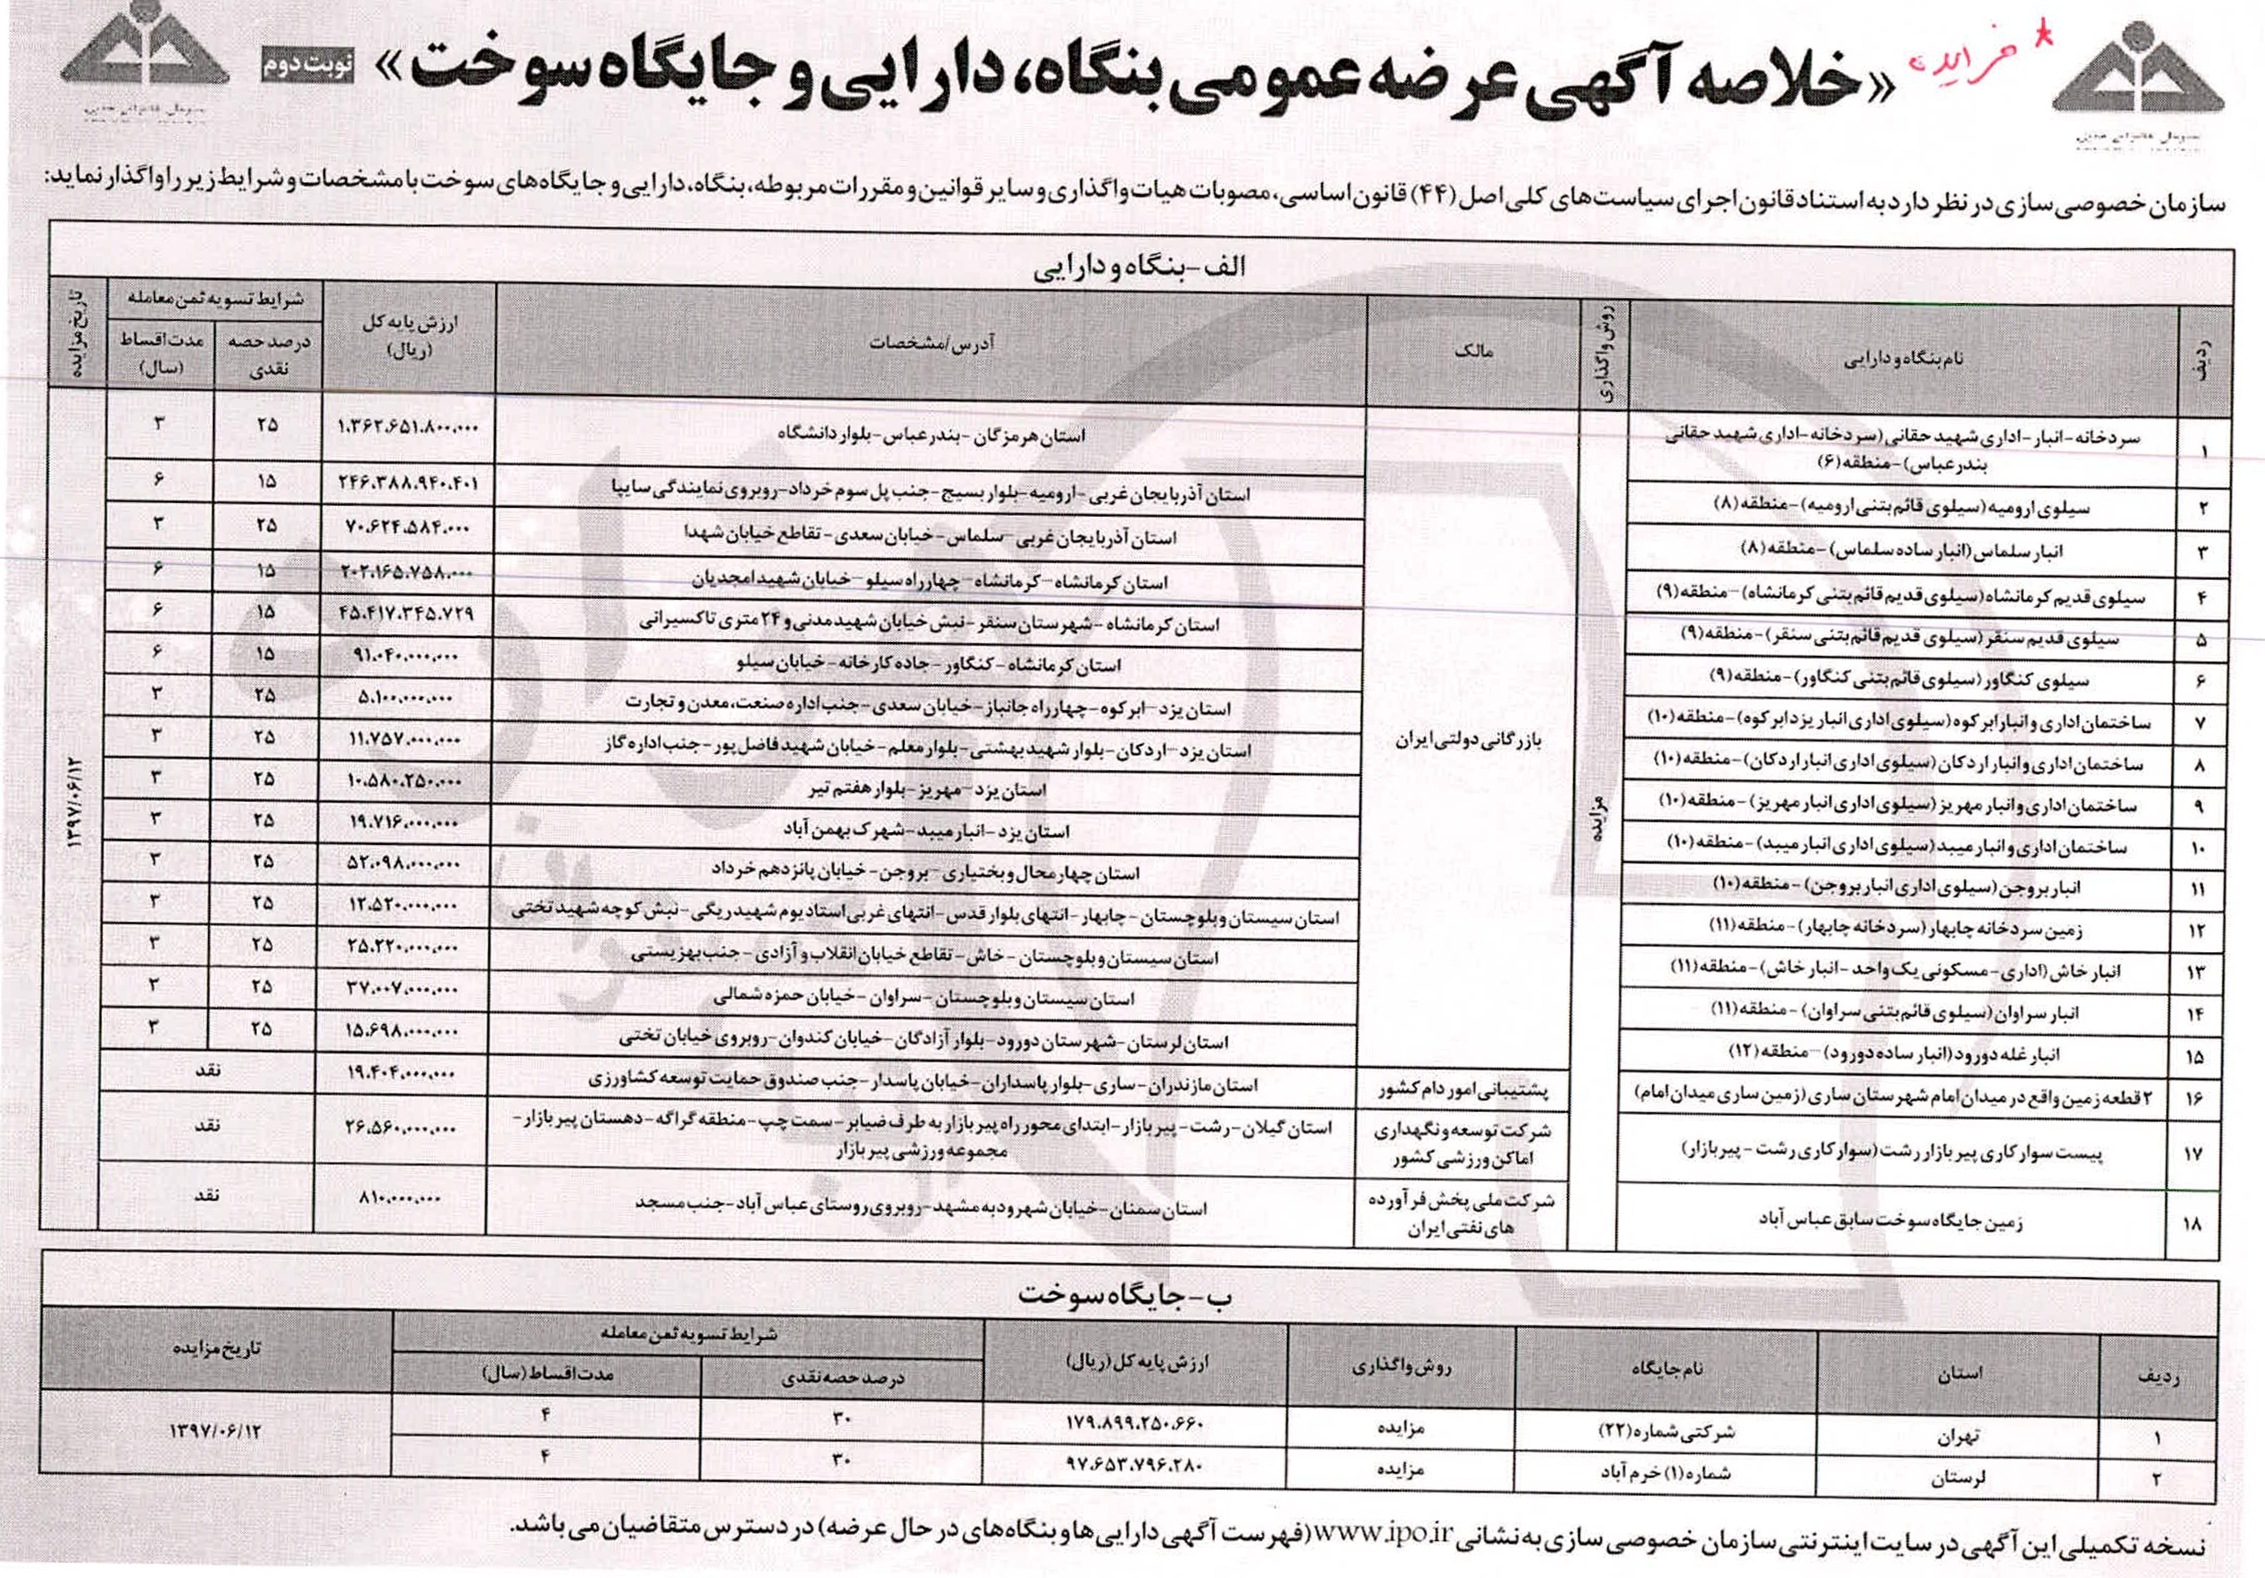 * مزایده
«خلاصه آگهی عرضه عمومی بنگاه، دارایی و جایگاه سوخت»
نوبت دوم
سازمان خصوصی سازی در نظر دارد به استناد قانون اجرای سیاست‌های کلی اصل (۴۴) قانون اساسی، مصوبات هیات واگذاری و سایر قوانین و مقررات مربوطه، بنگاه، دارایی و جایگاه‌های سوخت با مشخصات و شرایط زیر را واگذار نماید:
الف-بنگاه و دارایی
ردیف نام بنگاه و دارایی روش واگذاری مالک آدرس/مشخصات ارزش پایه کل (ریال) شرایط تسویه ثمن معامله درصد حصه نقدی مدت اقساط (سال) تاریخ مزایده
۱ سردخانه-انبار-اداری شهید حقانی (سردخانه-اداری شهید حقانی بندرعباس)-منطقه (۶) استان هرمزگان-بندرعباس-بلوار دانشگاه ۱.۳۶۲.۶۵۱.۸۰۰.۰۰۰ ۲۵ ۳
۲ سیلوی ارومیه (سیلوی قائم بتنی ارومیه)-منطقه (۸) استان آذربایجان غربی-ارومیه-بلوار بسیج-جنب پل سوم خرداد-روبروی نمایندگی سایپا ۲۴۶.۳۸۸.۹۴۰.۴۰۱ ۱۵ ۶
۳ انبار سلماس (انبار ساده سلماس)-منطقه (۸) استان آذربایجان غربی-سلماس-خیابان سعدی-تقاطع خیابان شهدا ۷۰.۶۲۴.۵۸۴.۰۰۰ ۲۵ ۳
۴ سیلوی قدیم کرمانشاه (سیلوی قدیم قائم بتنی کرمانشاه)-منطقه (۹) استان کرمانشاه-کرمانشاه-چهارراه سیلو-خیابان شهید امجدیان ۲۰۲.۱۶۵.۷۵۸.۰۰۰ ۱۵ ۶
۵ سیلوی قدیم سنقر (سیلوی قدیم قائم بتنی سنقر)-منطقه (۹) استان کرمانشاه-شهرستان سنقر-نبش خیابان شهید مدنی و ۲۴ متری تاکسیرانی ۴۵.۴۱۷.۳۴۵.۷۲۹ ۱۵ ۶
۶ سیلوی کنگاور (سیلوی قائم بتنی کنگاور)-منطقه (۹) استان کرمانشاه-کنگاور-جاده کارخانه-خیابان سیلو ۹۱.۰۴۰.۰۰۰.۰۰۰ ۱۵ ۶
۷ ساختمان اداری و انبار ابرکوه (سیلوی اداری انبار یزد ابرکوه)-منطقه (۱۰) استان یزد-ابرکوه-چهارراه جانباز-خیابان سعدی-جنب اداره صنعت، معدن و تجارت ۵.۱۰۰.۰۰۰.۰۰۰ ۲۵ ۳
۸ ساختمان اداری و انبار اردکان (سیلوی اداری انبار اردکان)-منطقه (۱۰) استان یزد-اردکان-بلوار شهید بهشتی-بلوار معلم-خیابان شهید فاضل پور-جنب اداره گاز ۱۱.۷۵۷.۰۰۰.۰۰۰ ۲۵ ۳
۹ ساختمان اداری و انبار مهریز (سیلوی اداری انبار مهریز)-منطقه (۱۰) استان یزد-مهریز-بلوار هفتم تیر ۱۰.۵۸۰.۲۵۰.۰۰۰ ۲۵ ۳
۱۰ ساختمان اداری و انبار میبد (سیلوی اداری انبار میبد)-منطقه (۱۰) استان یزد-انبار میبد-شهرک بهمن آباد ۱۹.۷۱۶.۰۰۰.۰۰۰ ۲۵ ۳
۱۱ انبار بروجن (سیلوی اداری انبار بروجن)-منطقه (۱۰) استان چهارمحال و بختیاری-بروجن-خیابان پانزدهم خرداد ۵۲.۰۹۸.۰۰۰.۰۰۰ ۲۵ ۳
۱۲ زمین سردخانه چابهار (سردخانه چابهار)-منطقه (۱۱) استان سیستان و بلوچستان-چابهار-انتهای بلوار قدس-انتهای غربی استادیوم شهید ریگی-نبش کوچه شهید تختی ۱۲.۵۲۰.۰۰۰.۰۰۰ ۲۵ ۳
۱۳ انبار خاش (اداری-مسکونی یک واحد-انبار خاش)-منطقه (۱۱) استان سیستان و بلوچستان-خاش-تقاطع خیابان انقلاب و آزادی-جنب بهزیستی ۲۵.۲۲۰.۰۰۰.۰۰۰ ۲۵ ۳
۱۴ انبار سراوان (سیلوی قائم بتنی سراوان)-منطقه (۱۱) استان سیستان و بلوچستان-سراوان-خیابان حمزه شمالی ۳۷.۰۰۷.۰۰۰.۰۰۰ ۲۵ ۳
۱۵ انبار غله دورود (انبار ساده دورود)-منطقه (۱۲) استان لرستان-شهرستان دورود-بلوار آزادگان-خیابان کندوان-روبروی خیابان تختی ۱۵.۶۹۸.۰۰۰.۰۰۰ ۲۵ ۳
مزایده بازرگانی دولتی ایران ۱۳۹۷/۰۶/۱۲
۱۶ ۲ قطعه زمین واقع در میدان امام شهرستان ساری (زمین ساری میدان امام) پشتیبانی امور دام کشور استان مازندران-ساری-بلوار پاسداران-خیابان پاسدار-جنب صندوق حمایت توسعه کشاورزی ۱۹.۴۰۴.۰۰۰.۰۰۰ نقد
۱۷ پیست سوارکاری پیربازار رشت (سوارکاری رشت-پیربازار) شرکت توسعه و نگهداری اماکن ورزشی کشور استان گیلان-رشت-پیربازار-ابتدای محور راه پیربازار به طرف ضیابر-سمت چپ-منطقه گراگه-دهستان پیربازار-مجموعه ورزشی پیربازار ۲۶.۵۶۰.۰۰۰.۰۰۰ نقد
۱۸ زمین جایگاه سوخت سابق عباس آباد شرکت ملی پخش فرآورده های نفتی ایران استان سمنان-خیابان شهرود به مشهد-روبروی روستای عباس آباد-جنب مسجد ۸۱۰.۰۰۰.۰۰۰ نقد
ب-جایگاه سوخت
ردیف استان نام جایگاه روش واگذاری ارزش پایه کل (ریال) شرایط تسویه ثمن معامله درصد حصه نقدی مدت اقساط (سال) تاریخ مزایده
۱ تهران شرکتی شماره (۲۲) مزایده ۱۷۹.۸۹۹.۲۵۰.۶۶۰ ۳۰ ۴ ۱۳۹۷/۰۶/۱۲
۲ لرستان شماره (۱) خرم آباد مزایده ۹۷.۶۵۳.۷۹۶.۲۸۰ ۳۰ ۴
نسخه تکمیلی این آگهی در سایت اینترنتی سازمان خصوصی سازی به نشانی www.ipo.ir (فهرست آگهی دارایی ها و بنگاه‌های در حال عرضه) در دسترس متقاضیان می باشد.